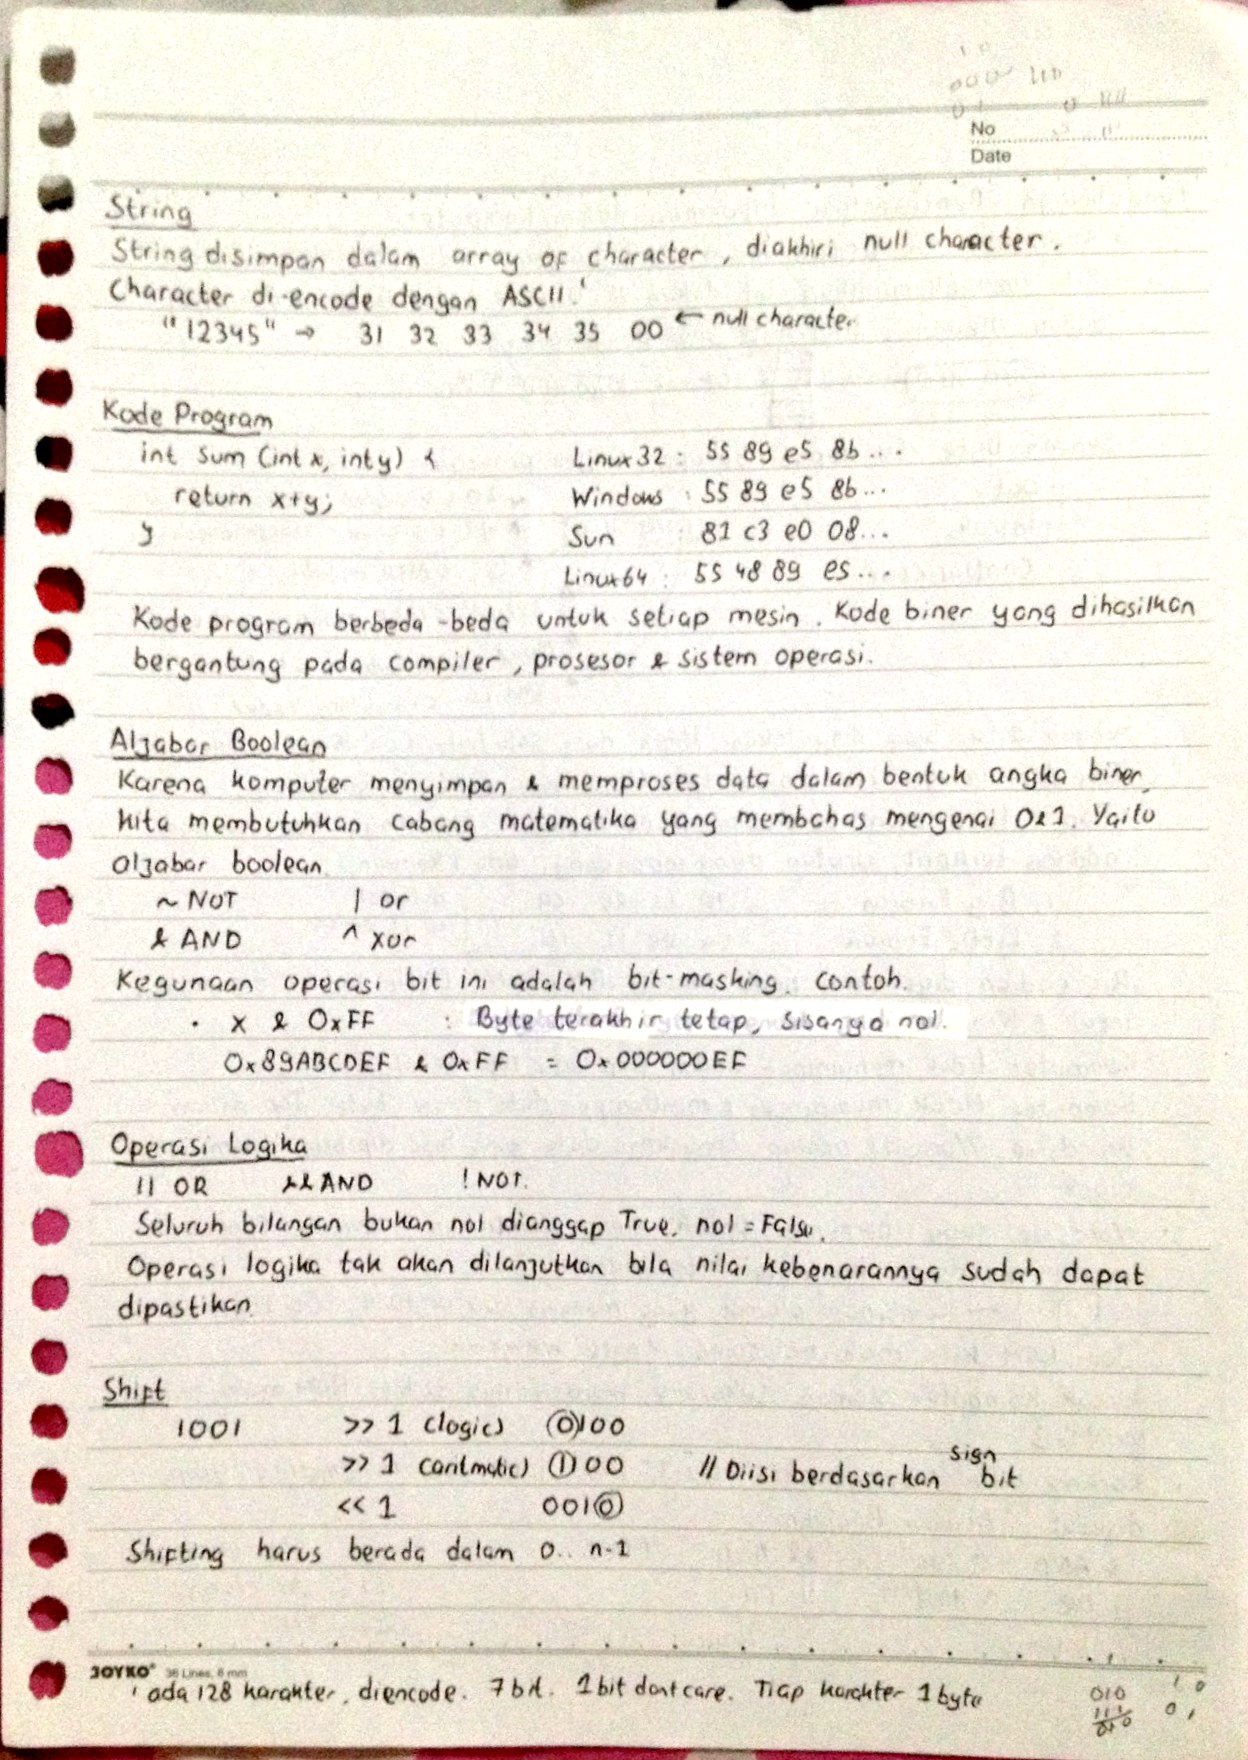 No
Date
String
String disimpan dalam array of character, diakhiri null character.
Character di-encode dengan ASCII.'
"12345" → 31 32 33 34 35 00 ← null character
Kode Program
int sum (int x, int y) { Linux32 : 55 89 e5 8b...
return x+y; Windows : 55 89 e5 8b...
} Sun : 81 c3 e0 08...
Linux64 : 55 48 89 e5...
Kode program berbeda-beda untuk setiap mesin. Kode biner yang dihasilkan
bergantung pada compiler, prosesor & sistem operasi.
Aljabar Boolean
Karena komputer menyimpan & memproses data dalam bentuk angka biner,
kita membutuhkan cabang matematika yang membahas mengenai 0&1. Yaitu
aljabar boolean.
~ NOT | or
& AND ^ xor
Kegunaan operasi bit ini adalah bit-masking. contoh.
• x & 0xFF : Byte terakhir tetap, sisanya nol.
0x89ABCDEF & 0xFF = 0x000000EF
Operasi Logika
|| OR && AND ! NOT.
Seluruh bilangan bukan nol dianggap True. nol = False.
Operasi logika tak akan dilanjutkan bila nilai kebenarannya sudah dapat
dipastikan.
Shift
1001 >> 1 (logic) 0100
>> 1 (aritmatic) 100 // Diisi berdasarkan sign bit
<< 1 0010
Shifting harus berada dalam 0.. n-1
JOYKO 36 Lines, 6 mm
' ada 128 karakter, diencode. 7 bit. 1 bit dont care. Tiap karakter 1 byte
010
111
010
1 0
0 1